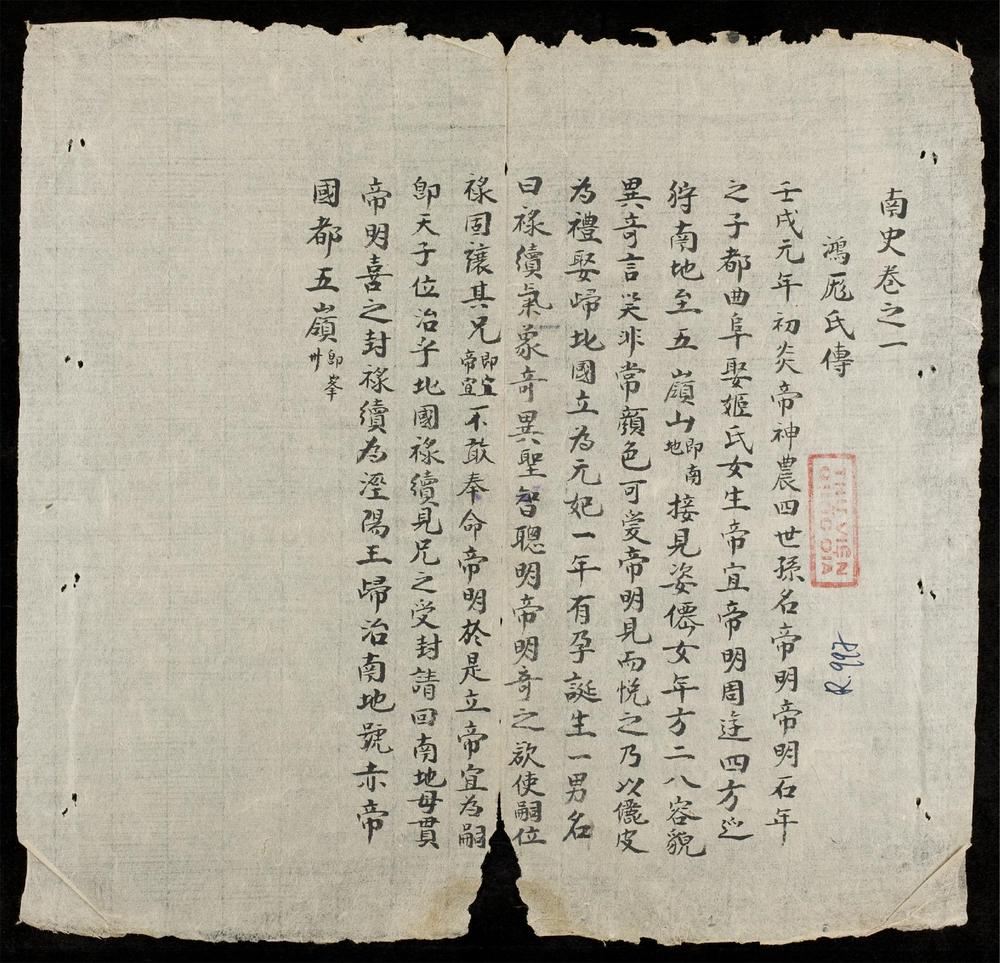 南史卷之一
鴻厖氏傳
壬戌元年初炎帝神農四世孫名帝明帝明石年
之子都曲阜娶姬氏女生帝宜帝明周迬四方巡
狩南地至五嶺山即南地接見姿僊女年方二八容貌
異奇言笑非常顏色可愛帝明見而悅之乃以儷皮
為禮娶歸北國立為元妃一年有孕誕生一男名
曰祿續氣象奇異聖智聰明帝明奇之欲使嗣位
祿固讓其兄即宜帝宜不敢奉命帝明於是立帝宜為嗣
即天子位治于北國祿續見兄之受封請回南地母貫
帝明喜之封祿續為涇陽王歸治南地號赤帝
國都五嶺即峯州
THƯ VIỆN
QUỐC GIA
R.997